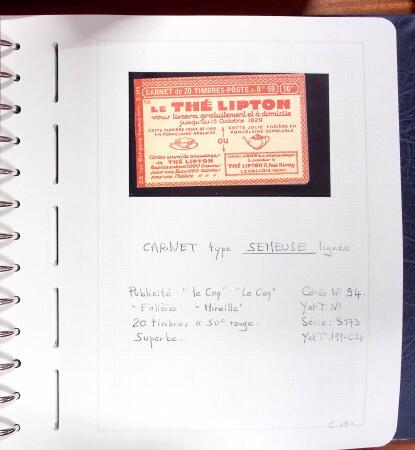 CARNET de 20 TIMBRES-POSTE de 0F 50 (10F)
LE THÉ LIPTON
vous livrera gratuitement et à domicile
jusqu'au 15 Octobre 1929
CETTE SUPERBE TASSE DE LUXE
EN PORCELAINE ANGLAISE
OU
CETTE JOLIE THÉIÈRE EN
PORCELAINE SEMBLABLE
Contre envoi de paquetages
de THÉ LIPTON
THÉ LIPTON
LEVALLOIS
CARNET type SEMEUSE lignée
Publicité "le Coq" "Le Coq" Cérès N° 94.
"Falières" "Mireille" Yet T. N°
20 timbres à 50c rouge. Série: S173
Superbe. YetT 199-C24
C 287